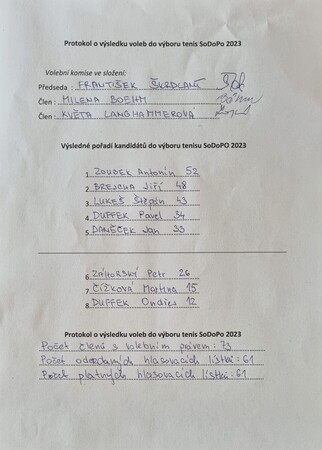 Protokol o výsledku voleb do výboru tenis SoDoPo 2023
Volební komise ve složení:
Předseda : FRANTIŠEK ŠKRDLANT
Člen : MILENA BOEHM
Člen : KVĚTA LANGHAMMEROVÁ
Výsledné pořadí kandidátů do výboru tenisu SoDoPO 2023
1. ZOUBEK Antonín 52
2. BREJCHA Jiří 48
3. LUKEŠ Štěpán 43
4. DUFFEK Pavel 34
5. DANĚČEK Jan 33
6. ZÁHORSKÝ Petr 26
7. ČÍŽKOVÁ Martina 15
8. DUFFEK Ondřej 12
Protokol o výsledku voleb do výboru tenis SoDoPO 2023
Počet členů s volebním právem : 73
Počet odevzdaných hlasovacích lístků : 61
Počet platných hlasovacích lístků : 61